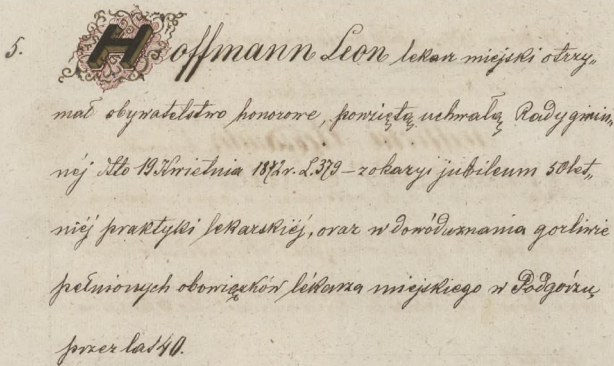 5. Hoffmann Leon lekarz miejski otrzy„
mał obywatelstwo honorowe, powziętą uchwałą Rady gmin„
néj dtto 19 Kwietnia 1872 r. L. 379 – z okazyi jubileum 50 let„
niéj praktyki lekarskiéj, oraz w dowód uznania gorliwie
pełnionych obowiązków lékarza miejskiego w Podgórzu
przez lat 40.